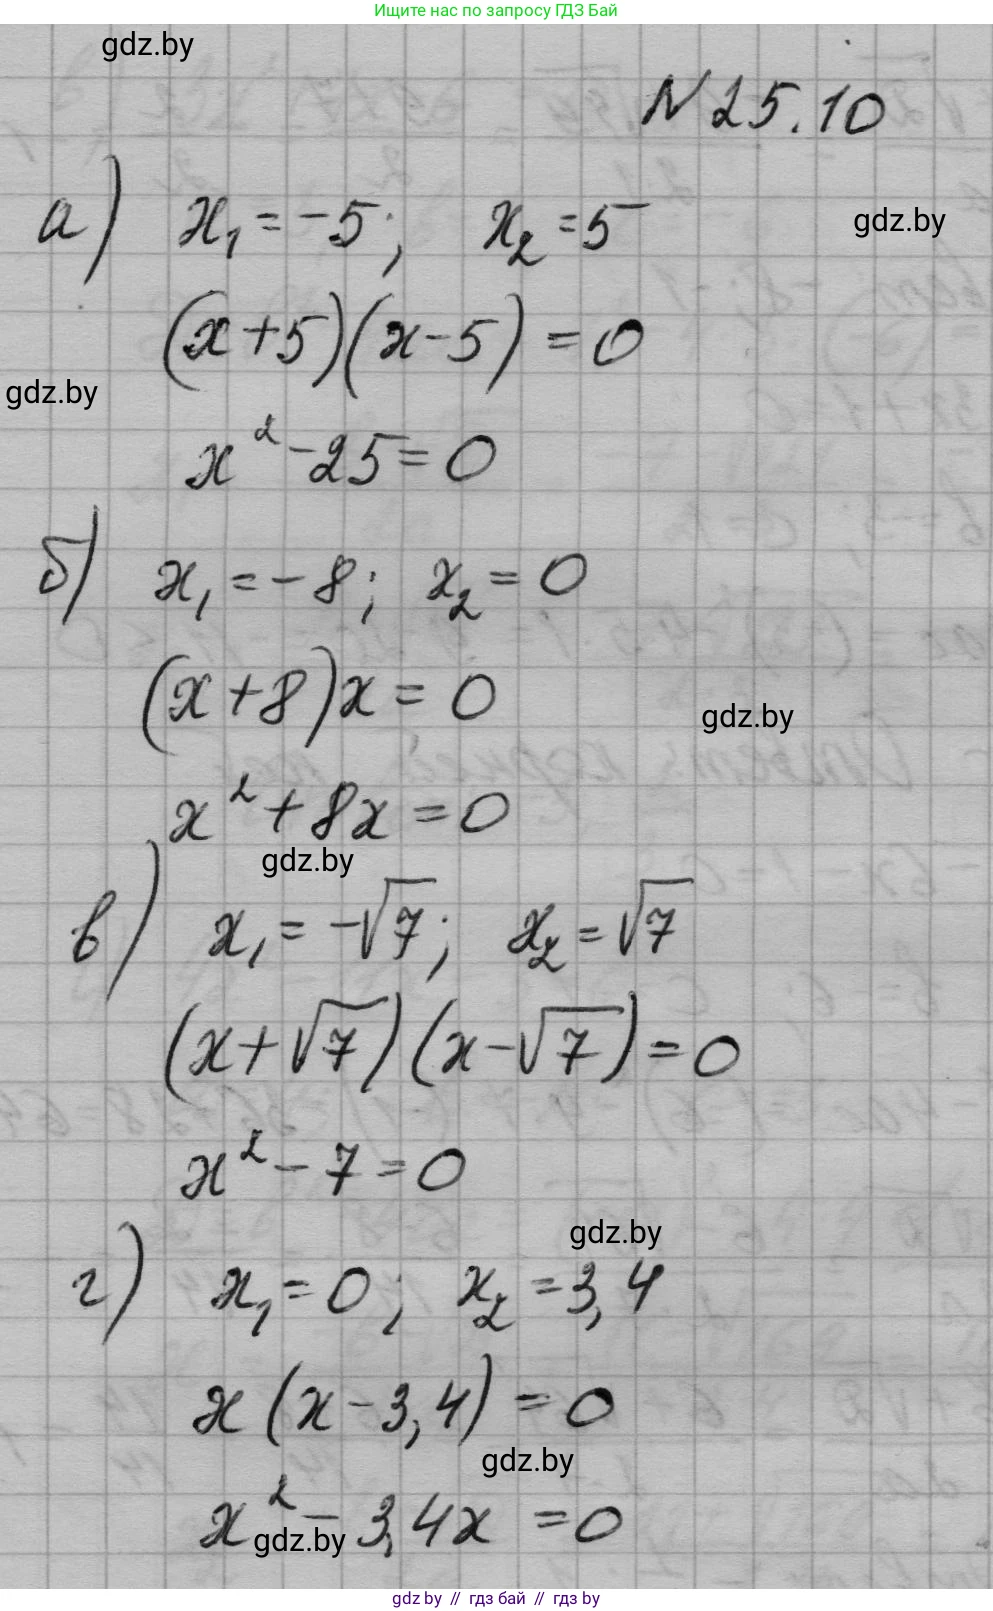 Ищите нас по запросу ГДЗ Бай
gdz.by
№ 25.10
а) x₁ = -5; x₂ = 5
gdz.by
(x+5)(x-5) = 0
gdz.by
x² - 25 = 0
б) x₁ = -8; x₂ = 0
(x+8)x = 0
gdz.by
x² + 8x = 0
gdz.by
в) x₁ = -√7; x₂ = √7
(x+√7)(x-√7) = 0
x² - 7 = 0
gdz.by
г) x₁ = 0; x₂ = 3,4
x(x-3,4) = 0
gdz.by
x² - 3,4x = 0
gdz.by
gdz by // гдз бай // гдз by